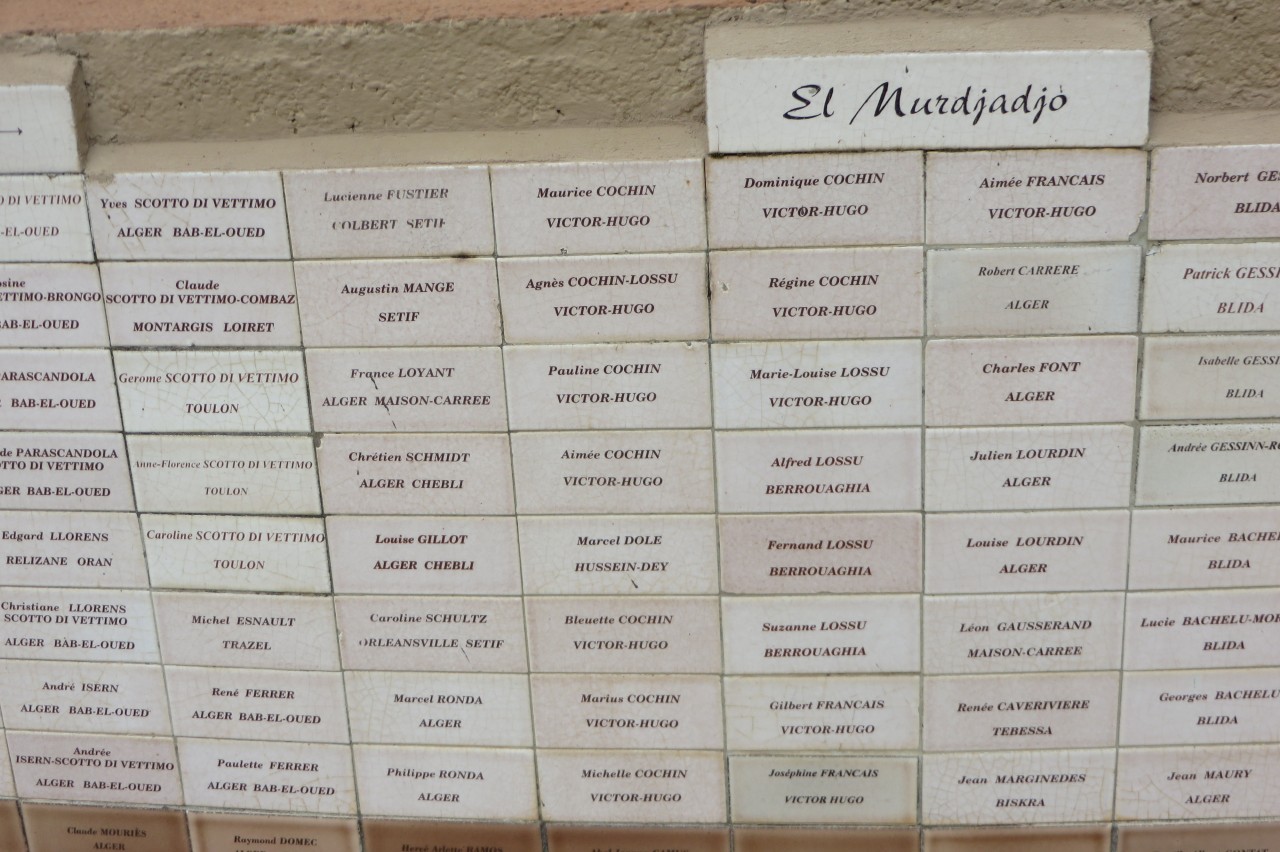 El Murdjadjo
DI VETTIMO
-EL-OUED
Yves SCOTTO DI VETTIMO
ALGER BAB-EL-OUED
Lucienne FUSTIER
COLBERT SETIF
Maurice COCHIN
VICTOR-HUGO
Dominique COCHIN
VICTOR-HUGO
Aimée FRANCAIS
VICTOR-HUGO
Norbert
BLIDA
ETTIMO-BRONGO
BAB-EL-OUED
Claude
SCOTTO DI VETTIMO-COMBAZ
MONTARGIS LOIRET
Augustin MANGE
SETIF
Agnès COCHIN-LOSSU
VICTOR-HUGO
Régine COCHIN
VICTOR-HUGO
Robert CARRERE
ALGER
Patrick
BLIDA
PARASCANDOLA
BAB-EL-OUED
Gerome SCOTTO DI VETTIMO
TOULON
France LOYANT
ALGER MAISON-CARREE
Pauline COCHIN
VICTOR-HUGO
Marie-Louise LOSSU
VICTOR-HUGO
Charles FONT
ALGER
Isabelle
BLIDA
de PARASCANDOLA
OTTO DI VETTIMO
GER BAB-EL-OUED
Anne-Florence SCOTTO DI VETTIMO
TOULON
Chrétien SCHMIDT
ALGER CHEBLI
Aimée COCHIN
VICTOR-HUGO
Alfred LOSSU
BERROUAGHIA
Julien LOURDIN
ALGER
Andrée
BLIDA
Edgard LLORENS
RELIZANE ORAN
Caroline SCOTTO DI VETTIMO
TOULON
Louise GILLOT
ALGER CHEBLI
Marcel DOLE
HUSSEIN-DEY
Fernand LOSSU
BERROUAGHIA
Louise LOURDIN
ALGER
Maurice
BLIDA
Christiane LLORENS
SCOTTO DI VETTIMO
ALGER BAB-EL-OUED
Michel ESNAULT
TRAZEL
Caroline SCHULTZ
ORLEANSVILLE SETIF
Bleuette COCHIN
VICTOR-HUGO
Suzanne LOSSU
BERROUAGHIA
Léon GAUSSERAND
MAISON-CARREE
Lucie
BLIDA
André ISERN
ALGER BAB-EL-OUED
René FERRER
ALGER BAB-EL-OUED
Marcel RONDA
ALGER
Marius COCHIN
VICTOR-HUGO
Gilbert FRANCAIS
VICTOR-HUGO
Renée CAVERIVIERE
TEBESSA
Georges BACHELU
BLIDA
Andrée
ISERN-SCOTTO DI VETTIMO
ALGER BAB-EL-OUED
Paulette FERRER
ALGER BAB-EL-OUED
Philippe RONDA
ALGER
Michelle COCHIN
VICTOR-HUGO
Joséphine FRANCAIS
VICTOR HUGO
Jean MARGINEDES
BISKRA
Jean MAURY
ALGER
Claude MOURIÈS
ALGER
Raymond DOMEC
Hervé Arlette RAMOS